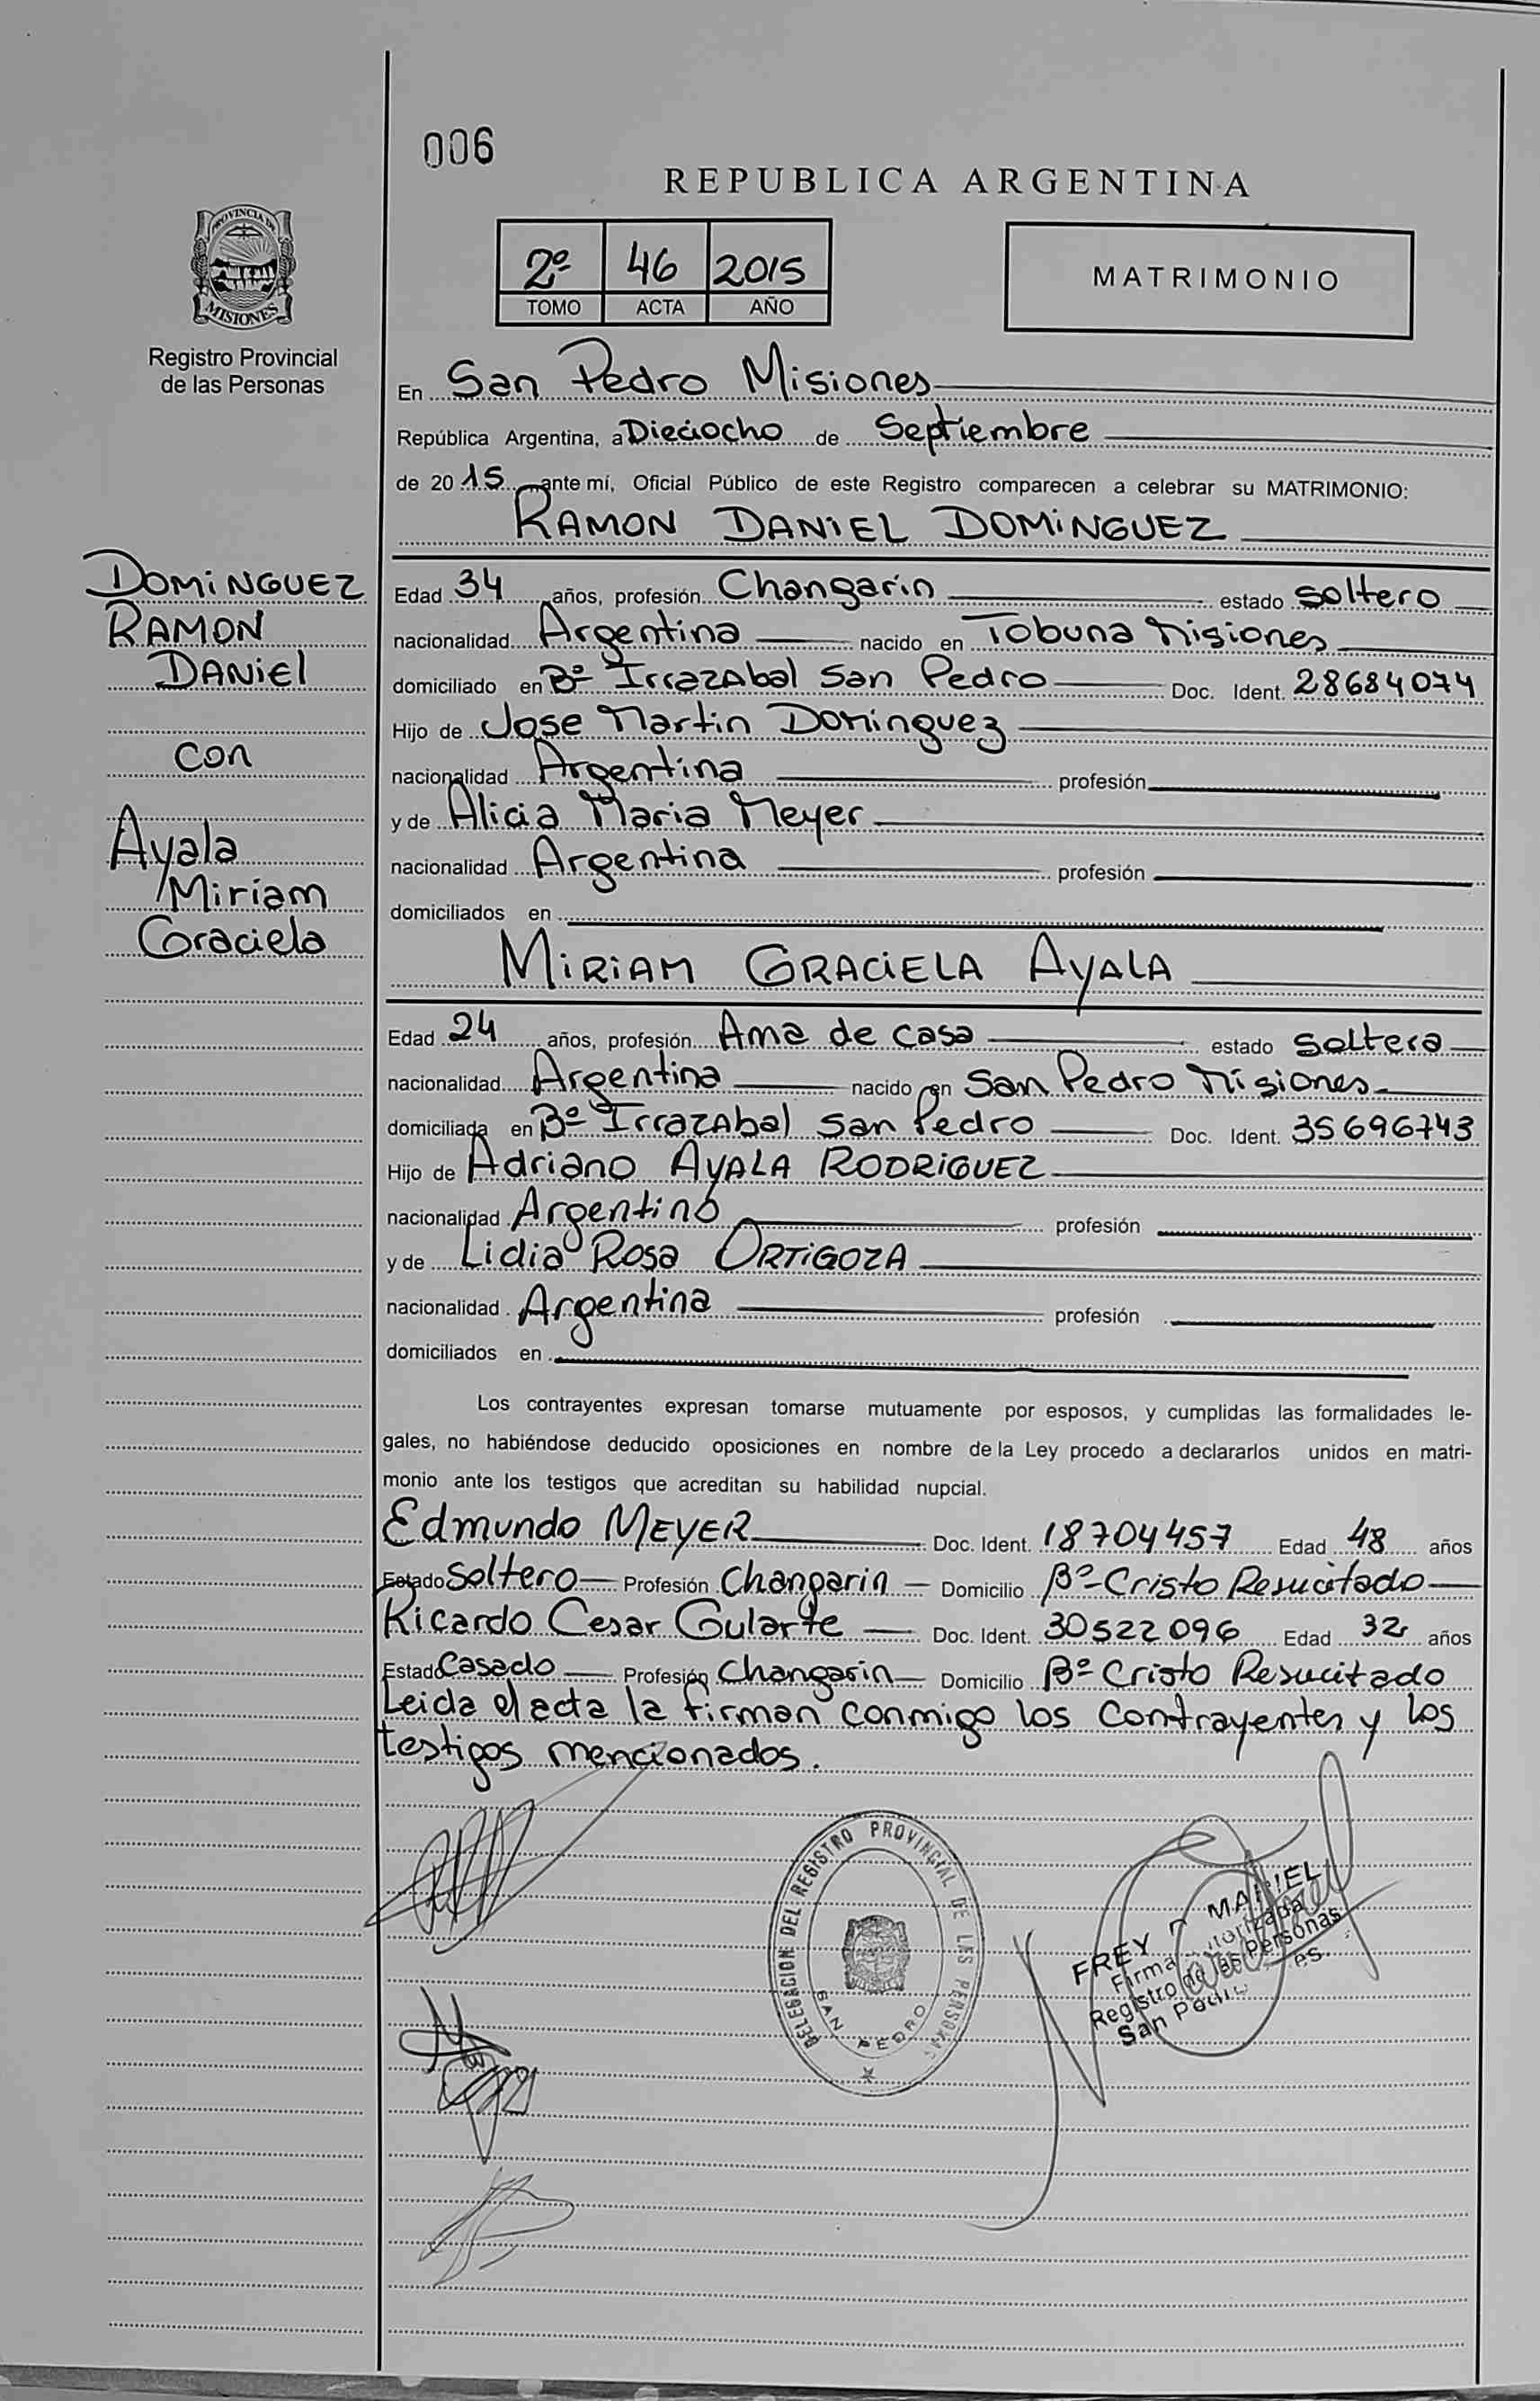 006
REPUBLICA ARGENTINA
PROVINCIA DE
MISIONES
Registro Provincial
de las Personas
2º 46 2015
TOMO ACTA AÑO
MATRIMONIO
En San Pedro Misiones
República Argentina, a Dieciocho de Septiembre
de 2015 ante mí, Oficial Público de este Registro comparecen a celebrar su MATRIMONIO:
RAMON DANIEL DOMINGUEZ
DOMINGUEZ
RAMON
DANIEL
con
Ayala
Miriam
Graciela
Edad 34 años, profesión Changarin estado soltero
nacionalidad Argentina nacido en Tobuna Misiones
domiciliado en Bº Irrazabal San Pedro Doc. Ident. 28684074
Hijo de Jose Martin Dominguez
nacionalidad Argentina profesión
y de Alicia Maria Meyer
nacionalidad Argentina profesión
domiciliados en
MIRIAM GRACIELA AYALA
Edad 24 años, profesión Ama de casa estado soltera
nacionalidad Argentina nacido en San Pedro Misiones
domiciliada en Bº Irrazabal San Pedro Doc. Ident. 35696743
Hijo de Adriano AYALA RODRIGUEZ
nacionalidad Argentino profesión
y de Lidia Rosa ORTIGOZA
nacionalidad Argentina profesión
domiciliados en
Los contrayentes expresan tomarse mutuamente por esposos, y cumplidas las formalidades le-
gales, no habiéndose deducido oposiciones en nombre de la Ley procedo a declararlos unidos en matri-
monio ante los testigos que acreditan su habilidad nupcial.
Edmundo MEYER Doc. Ident. 18704457 Edad 48 años
Estado Soltero Profesión Changarin Domicilio Bº Cristo Resucitado
Ricardo Cesar Gularte Doc. Ident. 30522096 Edad 32 años
Estado Casado Profesión Changarin Domicilio Bº Cristo Resucitado
Leida el acta la firman conmigo los contrayentes y los
testigos mencionados.
DELEGACION DEL REGISTRO PROVINCIAL DE LAS PERSONAS
SAN PEDRO
FREY MARIEL
Firma
Registro de las Personas
San